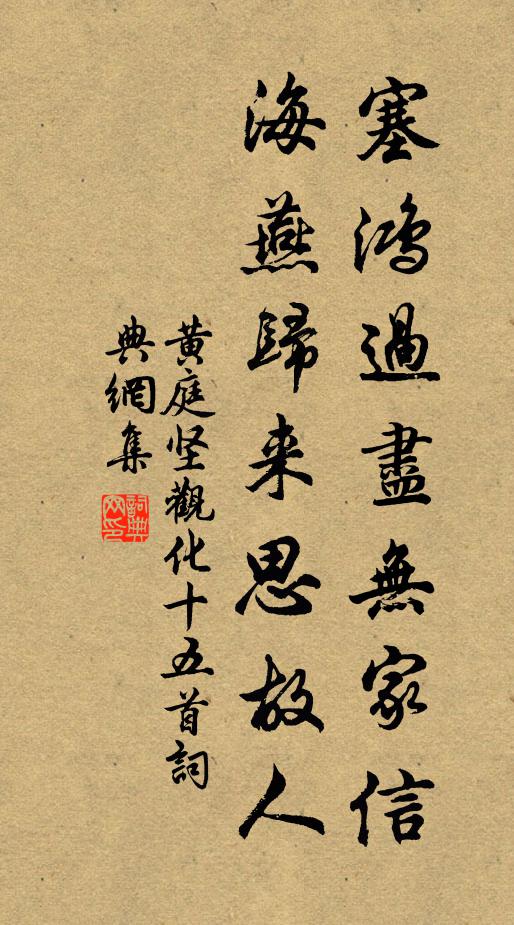 塞鴻過盡無家信
海燕歸来思故人
黄庭坚觀化十五首詞
典網集
詞典網印